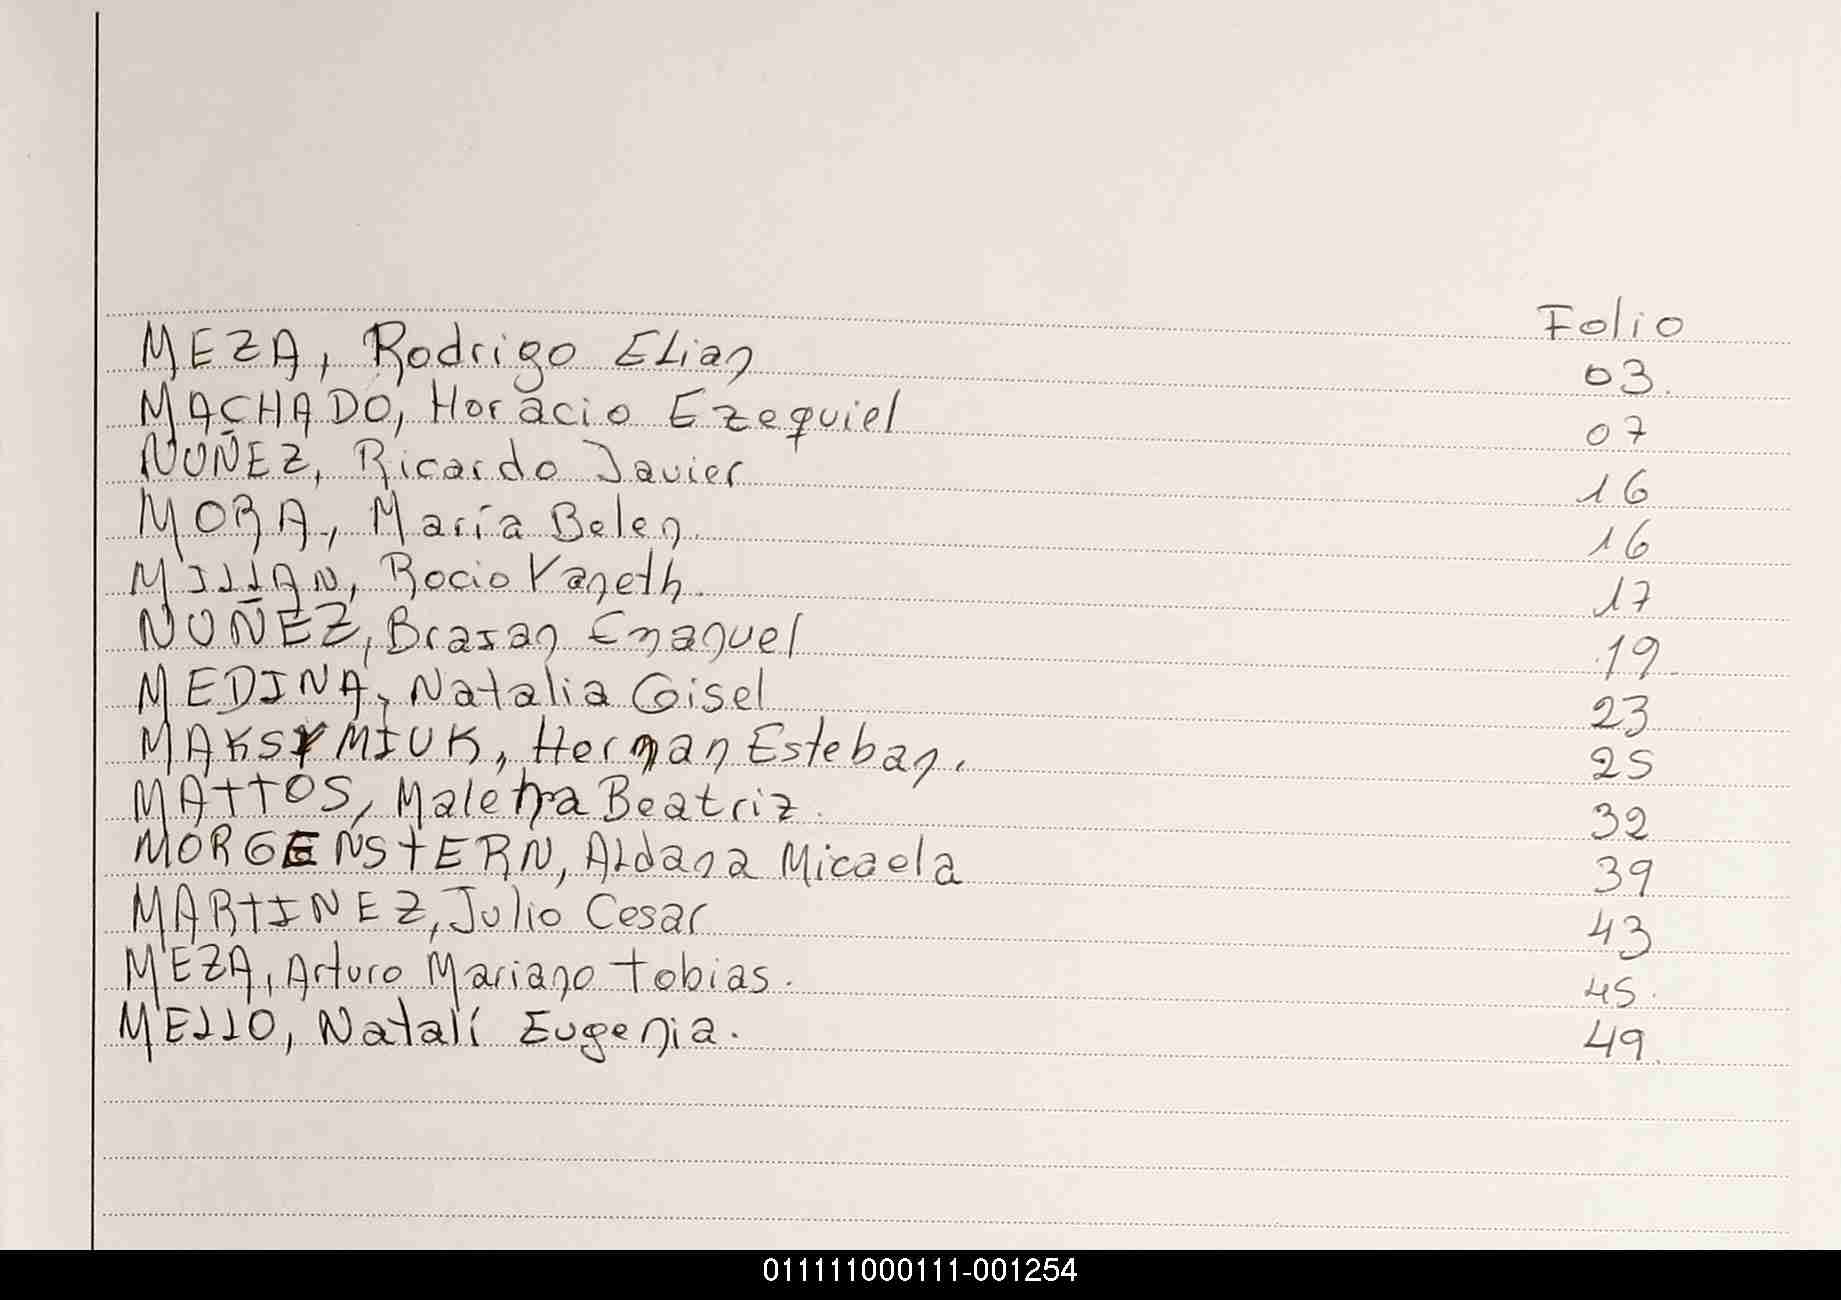 Folio
MEZA, Rodrigo Elian 03.
MACHADO, Horacio Ezequiel 07
NUÑEZ, Ricardo Javier 16
MORA, María Belen. 16
MILLAN, Rocio Yaneth. 17
NUÑEZ, Braian Emanuel 19
MEDINA, Natalia Gisel 23
MAKSYMIUK, Hernan Esteban. 25
MATTOS, Beatriz. 32
MORGENSTERN, Aldana Micaela 39
MARTINEZ, Julio Cesar 43
MEZA, Arturo Mariano Tobias. 45.
MELLO, Natalí Eugenia. 49.
011111000111-001254